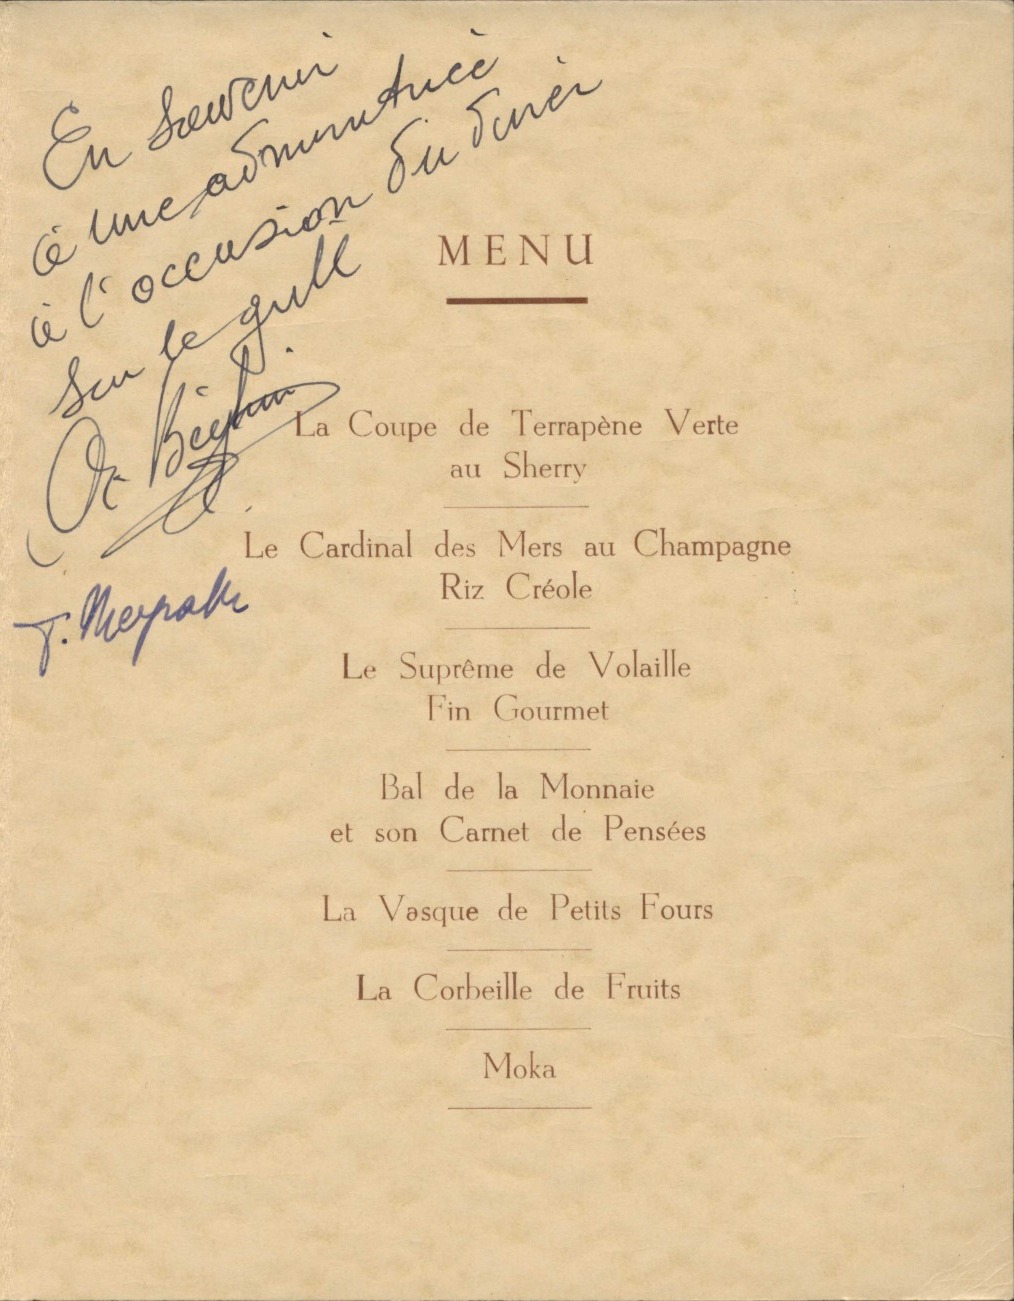 En Souvenir
à une admiratrice
à l'occasion du diner
sur le grill
MENU
La Coupe de Terrapène Verte
au Sherry
Le Cardinal des Mers au Champagne
Riz Créole
Le Suprême de Volaille
Fin Gourmet
Bal de la Monnaie
et son Carnet de Pensées
La Vasque de Petits Fours
La Corbeille de Fruits
Moka